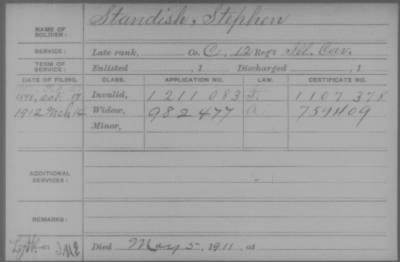 NAME OF SOLDIER: Standish, Stephen
SERVICE: Late rank, Co. C, 12 Reg't Ill. Cav.
TERM OF SERVICE: Enlisted , 1 Discharged , 1
DATE OF FILING. CLASS. APPLICATION NO. LAW. CERTIFICATE NO.
Oct. Invalid, 1211083 1107378
1912 Mch 14 Widow, 982477 754409
Minor,
ADDITIONAL SERVICES:
REMARKS:
Died May 5, 1911, at